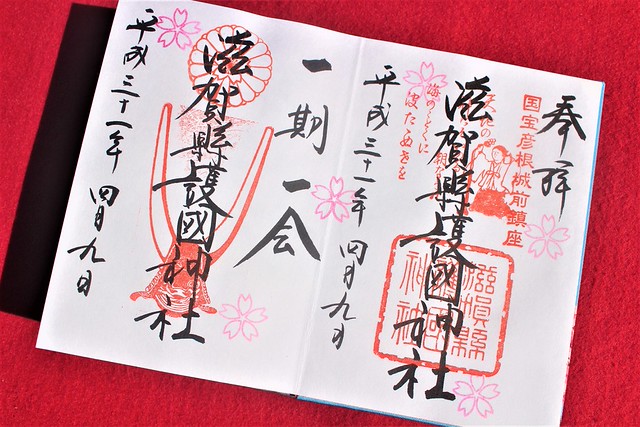 奉拝
国宝彦根城前鎮座
滋賀縣護國神社
滋賀縣
神社
平成三十一年 四月九日
一期一会
滋賀縣護國神社
平成三十一年 四月九日